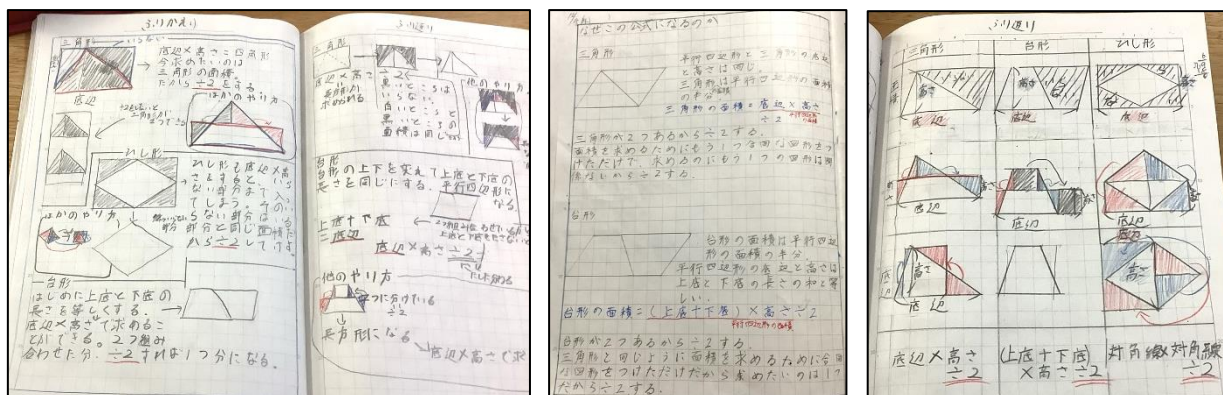 ふりかえり
三角形
いらない
底辺×高さ=四角形
今求めたいのは
三角形の面積。
だから÷2をする。
ほかのやり方
底辺
ひし形
ひし形も底辺×高
さをすると、いら
ない部分まで入っ
てしまう。その
らない部分は
部分と同じ面積だ
から÷2して
ほかのやり方
台形
はじめに上底と下底の
長さを等しくする。
底辺×高さで求めるこ
とができる。2つ組み
合わせた分、÷2すれば1つ分になる。
ふり返り
三角形
底辺×高さ÷2
長方形が
求められる
黒いところは
いらない。
白いところと
黒いところの
面積は同じ
他のやり方
台形
台形の上下を変えて上底と下底の
長さを同じにする。平行四辺形に
なる。
上底+下底
=底辺
底辺×高さ÷2
他のやり方
2つに分けている
÷2
長方形になる
底辺×高さで求
なぜこの公式になるのか
三角形
平行四辺形と三角形の底辺
と高さは同じ。
三角形は平行四辺形の面積
の半分
三角形の面積=底辺×高さ
÷2
平行四辺形の面積
三角形が2つあるから÷2する。
面積を求めるためにもう1つ合同な図形をつ
けただけで、求めるのにもう1つの図形は関
係ないから÷2する。
台形
台形の面積は平行四辺
形の面積の半分。
平行四辺形の底辺と高さは
上底と下底の長さの和と等
しい。
台形の面積=(上底+下底)×高さ÷2
平行四辺形の面積
台形が2つあるから÷2する。
三角形と同じように面積を求めるために合同
な図形をつけただけだから求めたいのは1つ
だから÷2する。
ふり返り
三角形
台形
ひし形
高さ
底辺
高さ
底辺
高さ
底辺
高さ
底辺
高さ
底辺
高さ
底辺
高さ
底辺
底辺
高さ
底辺×高さ
÷2
(上底+下底)
×高さ÷2
対角線×対角線
÷2